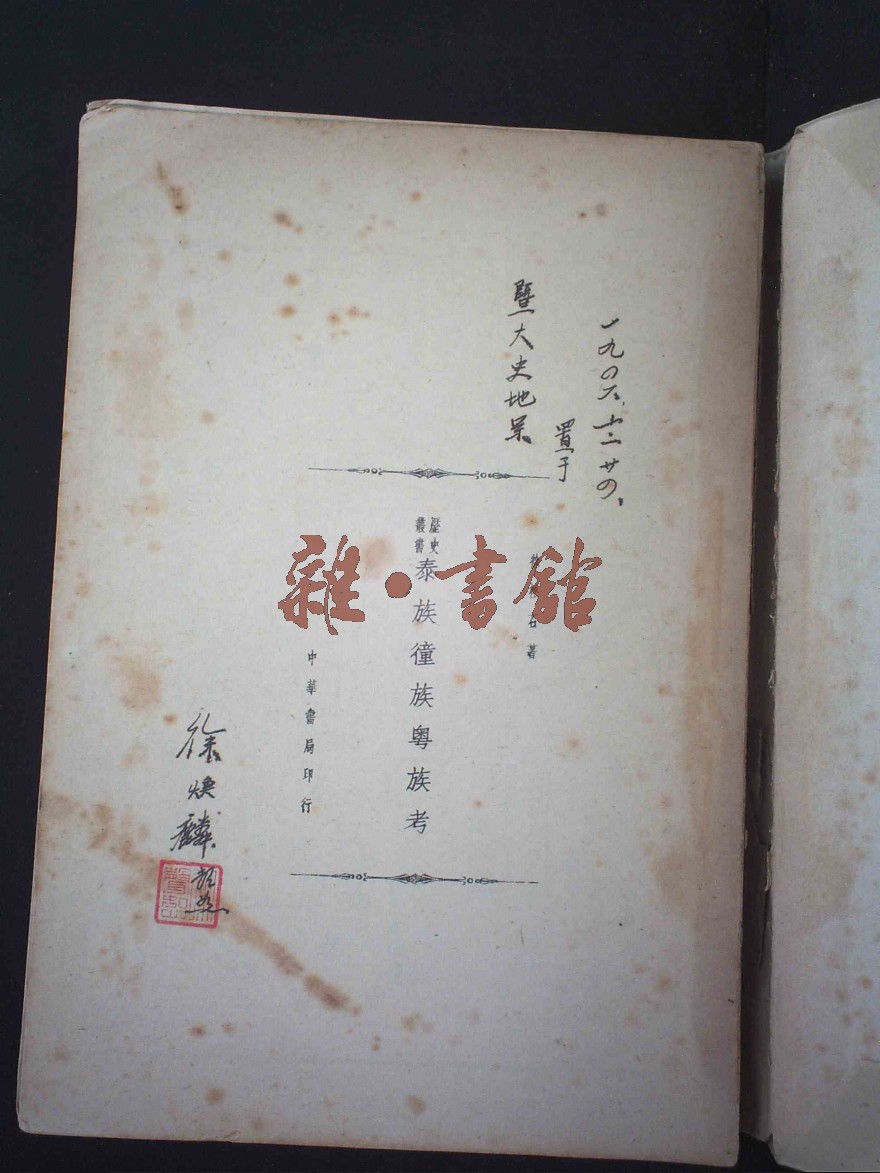 一九四六.十二廿四、
置于
暨大史地系
石著
歷史
叢書
泰族徸族粵族考
中華書局印行
徐煥麟
雜·書館